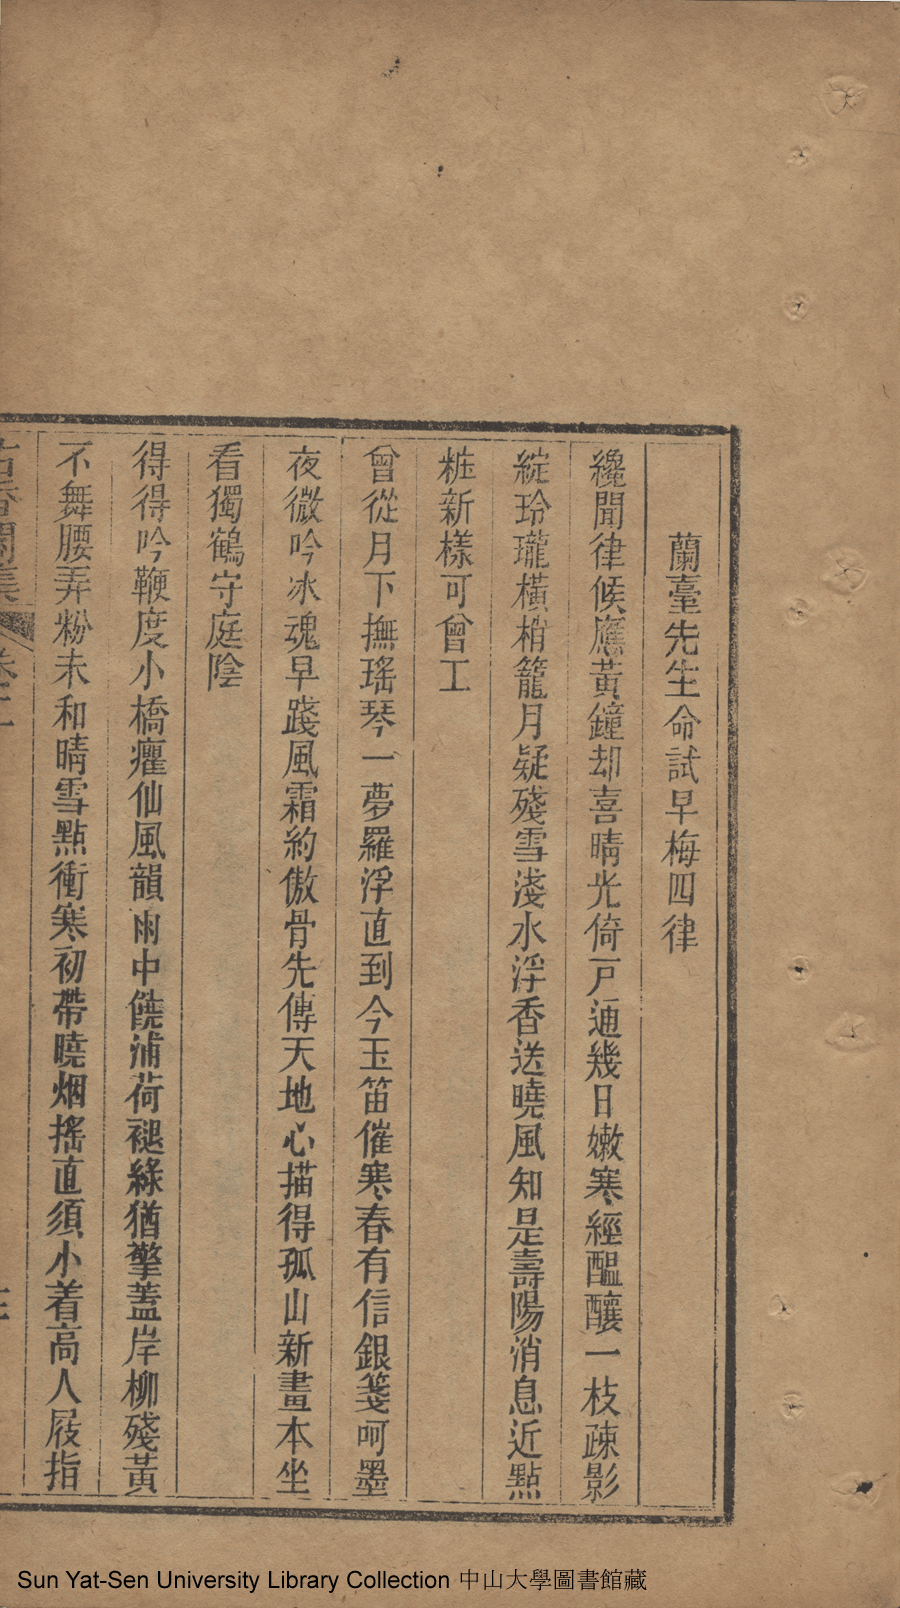 蘭臺先生命試早梅四律
纔聞律候應黃鐘却喜晴光倚戸通幾日嫩寒經醞釀一枝疎影
綻玲瓏橫梢籠月疑殘雪淺水浮香送曉風知是壽陽消息近點
粧新樣可曾工
曾從月下撫瑤琴一夢羅浮直到今玉笛催寒春有信銀箋呵墨
夜微吟冰魂早踐風霜約傲骨先傳天地心描得孤山新畫本坐
看獨鶴守庭陰
得得吟鞭度小橋癯仙風韻雨中饒浦荷褪綠猶擎蓋岸柳殘黃
不舞腰弄粉未和晴雪點衝寒初帶曉烟搖直須小着高人屐指
香閣集 卷二
Sun Yat-Sen University Library Collection 中山大學圖書館藏